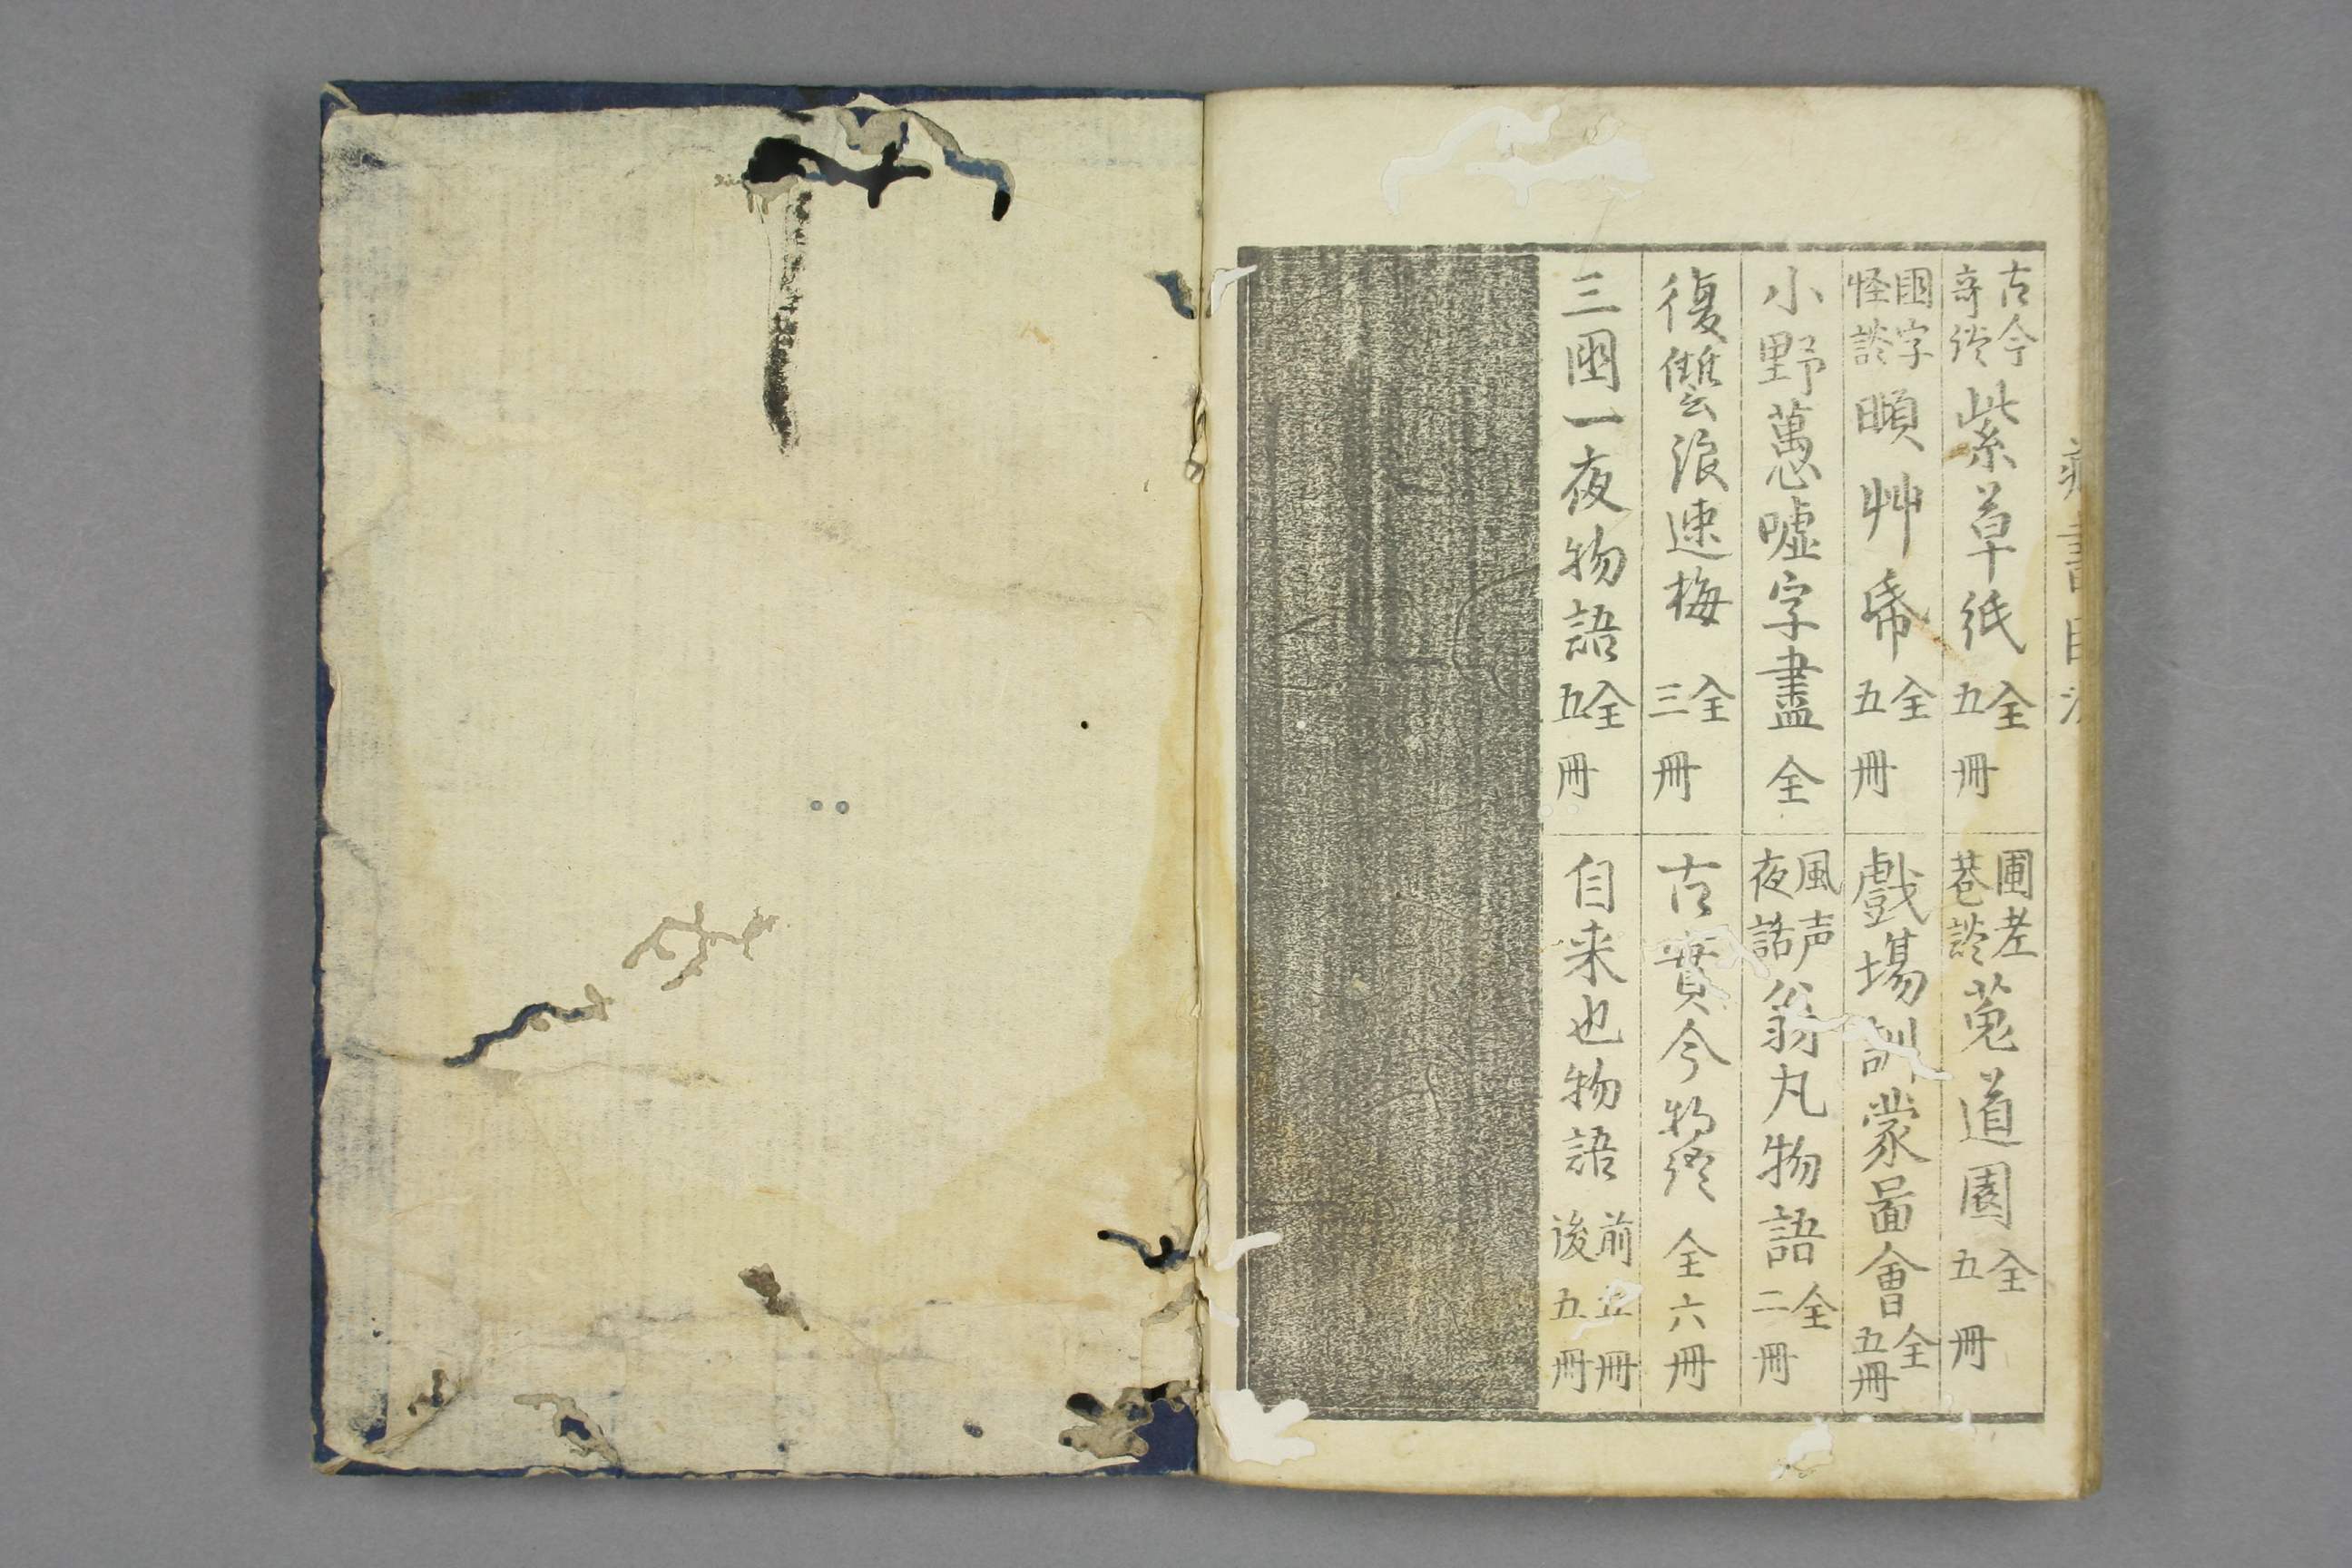 藏書目次
古今奇談 紫草紙 全五冊
圃老巷談 菟道園 全五冊
國字怪談 頤艸帋 全五冊
戯場訓蒙圖會 全五冊
小野嘘字盡 全
風声夜話 翁丸物語 全二冊
復讐浪速梅 全三冊
古實今物語 全六冊
三國一夜物語 全五冊
自来也物語 前五冊 後五冊